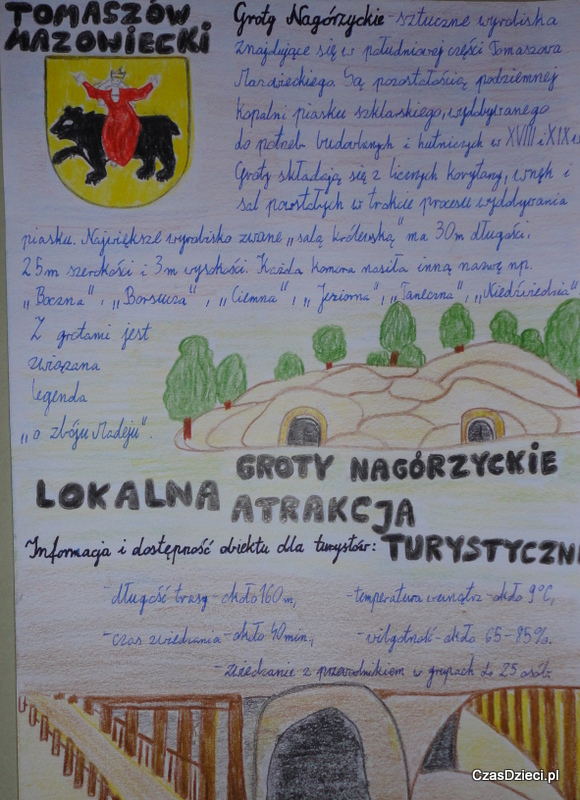 TOMASZÓW
MAZOWIECKI
Groty Nagórzyckie - sztuczne wyrobiska
znajdujące się w południowej części Tomaszowa
Mazowieckiego. Są pozostałością podziemnej
kopalni piasku szklarskiego, wydobywanego
do potrzeb budowlanych i hutniczych w XVIII i XIX w
Groty składają się z licznych korytarzy, wnęk i
sal powstałych w trakcie procesu wydobywania
piasku. Największe wyrobisko zwane „salą królewską" ma 30m długości,
25m szerokości i 3m wysokości. Każda komora nosiła inną nazwę np.
„Boczna", „Borsucza", „Ciemna", „Jeziorna", „Taneczna", „Niedźwiedzia"
Z grotami jest
związana
legenda
„o zbóju Madeju".
GROTY NAGÓRZYCKIE
LOKALNA ATRAKCJA
TURYSTYCZN
Informacja i dostępność obiektu dla turystów:
- długość trasy - około 160m,
- temperatura wewnątrz - około 9°C,
- czas zwiedzania - około 40min.,
- wilgotność - około 65-85%.
- zwiedzanie z przewodnikiem w grupach do 25 osób.
CzasDzieci.pl